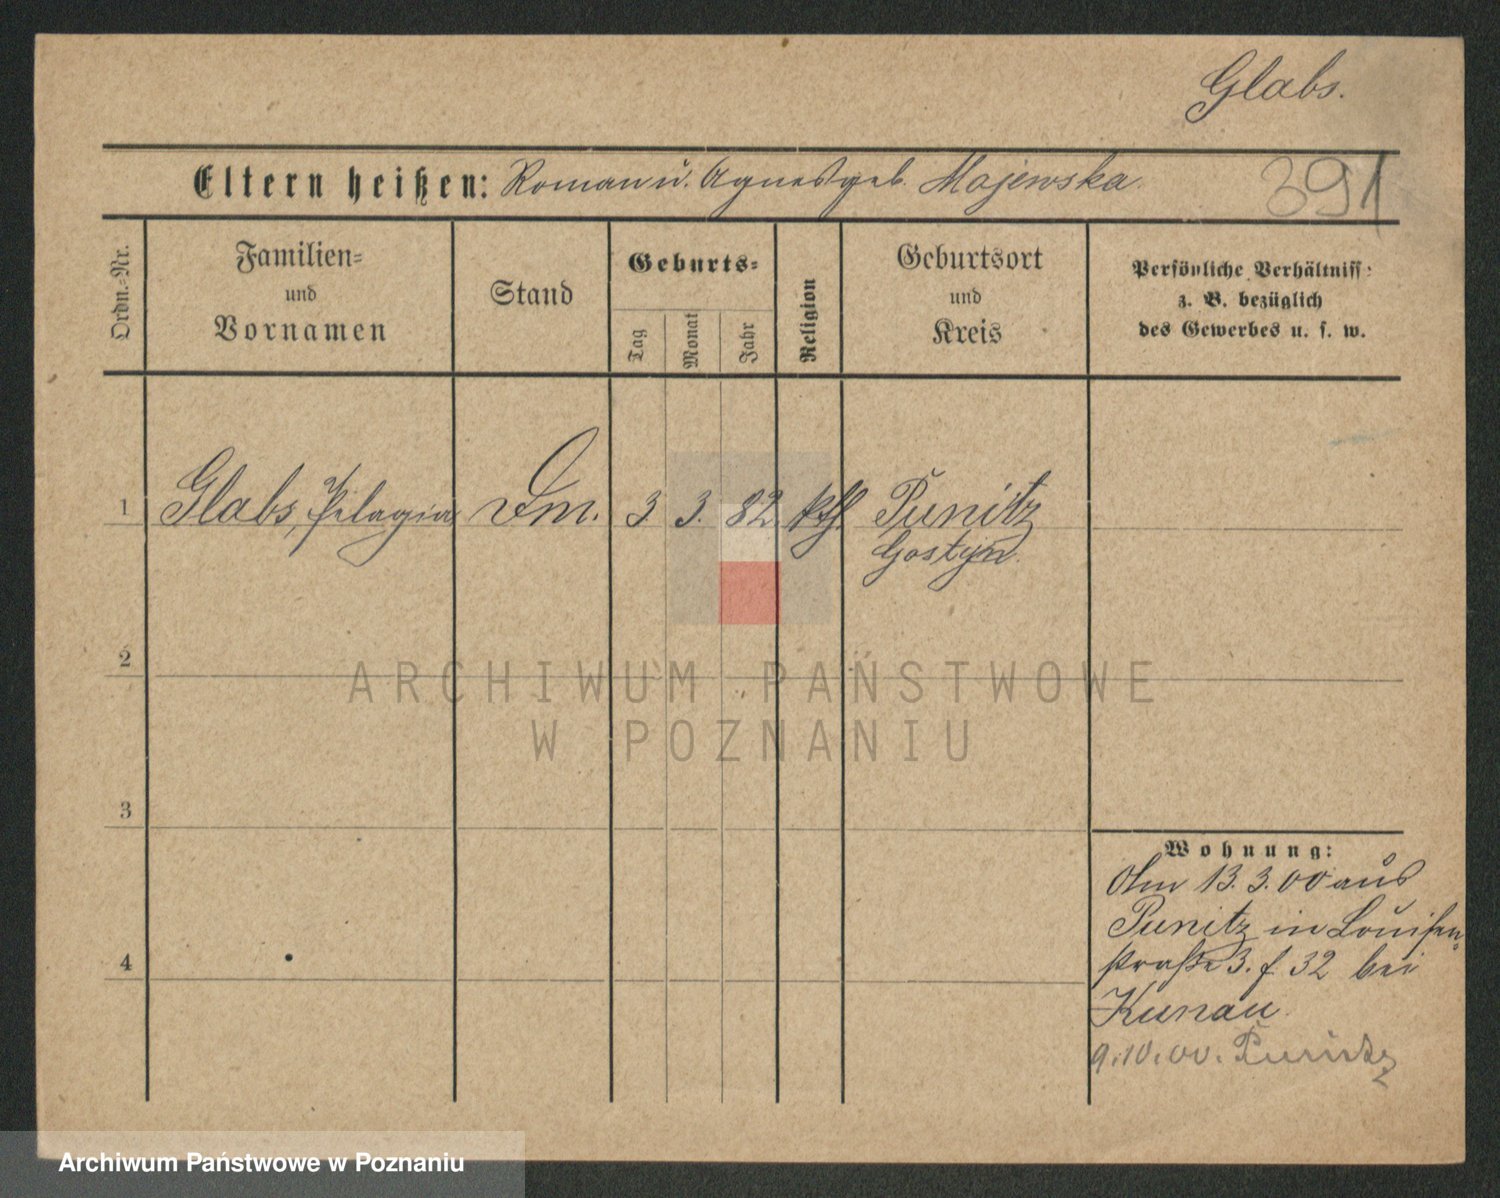 Glabs.
Eltern heißen: Roman u. Agnes geb. Majewska. 391
Ordn.-Nr.
Familien-
und
Vornamen
Stand
Geburts-
Tag
Monat
Jahr
Religion
Geburtsort
und
Kreis
Persönliche Verhältniss:
z. B. bezüglich
des Gewerbes u. s. w.
1 Glabs, Pelagia Dm. 3. 3. 82 kth. Punitz
Gostyn.
2
3
4
Wohnung:
Am 13.3.00 aus
Punitz in Louisen-
straße 3. f. 32 bei
Kunau.
9.10.00. Punitz
ARCHIWUM PAŃSTWOWE
W POZNANIU
Archiwum Państwowe w Poznaniu